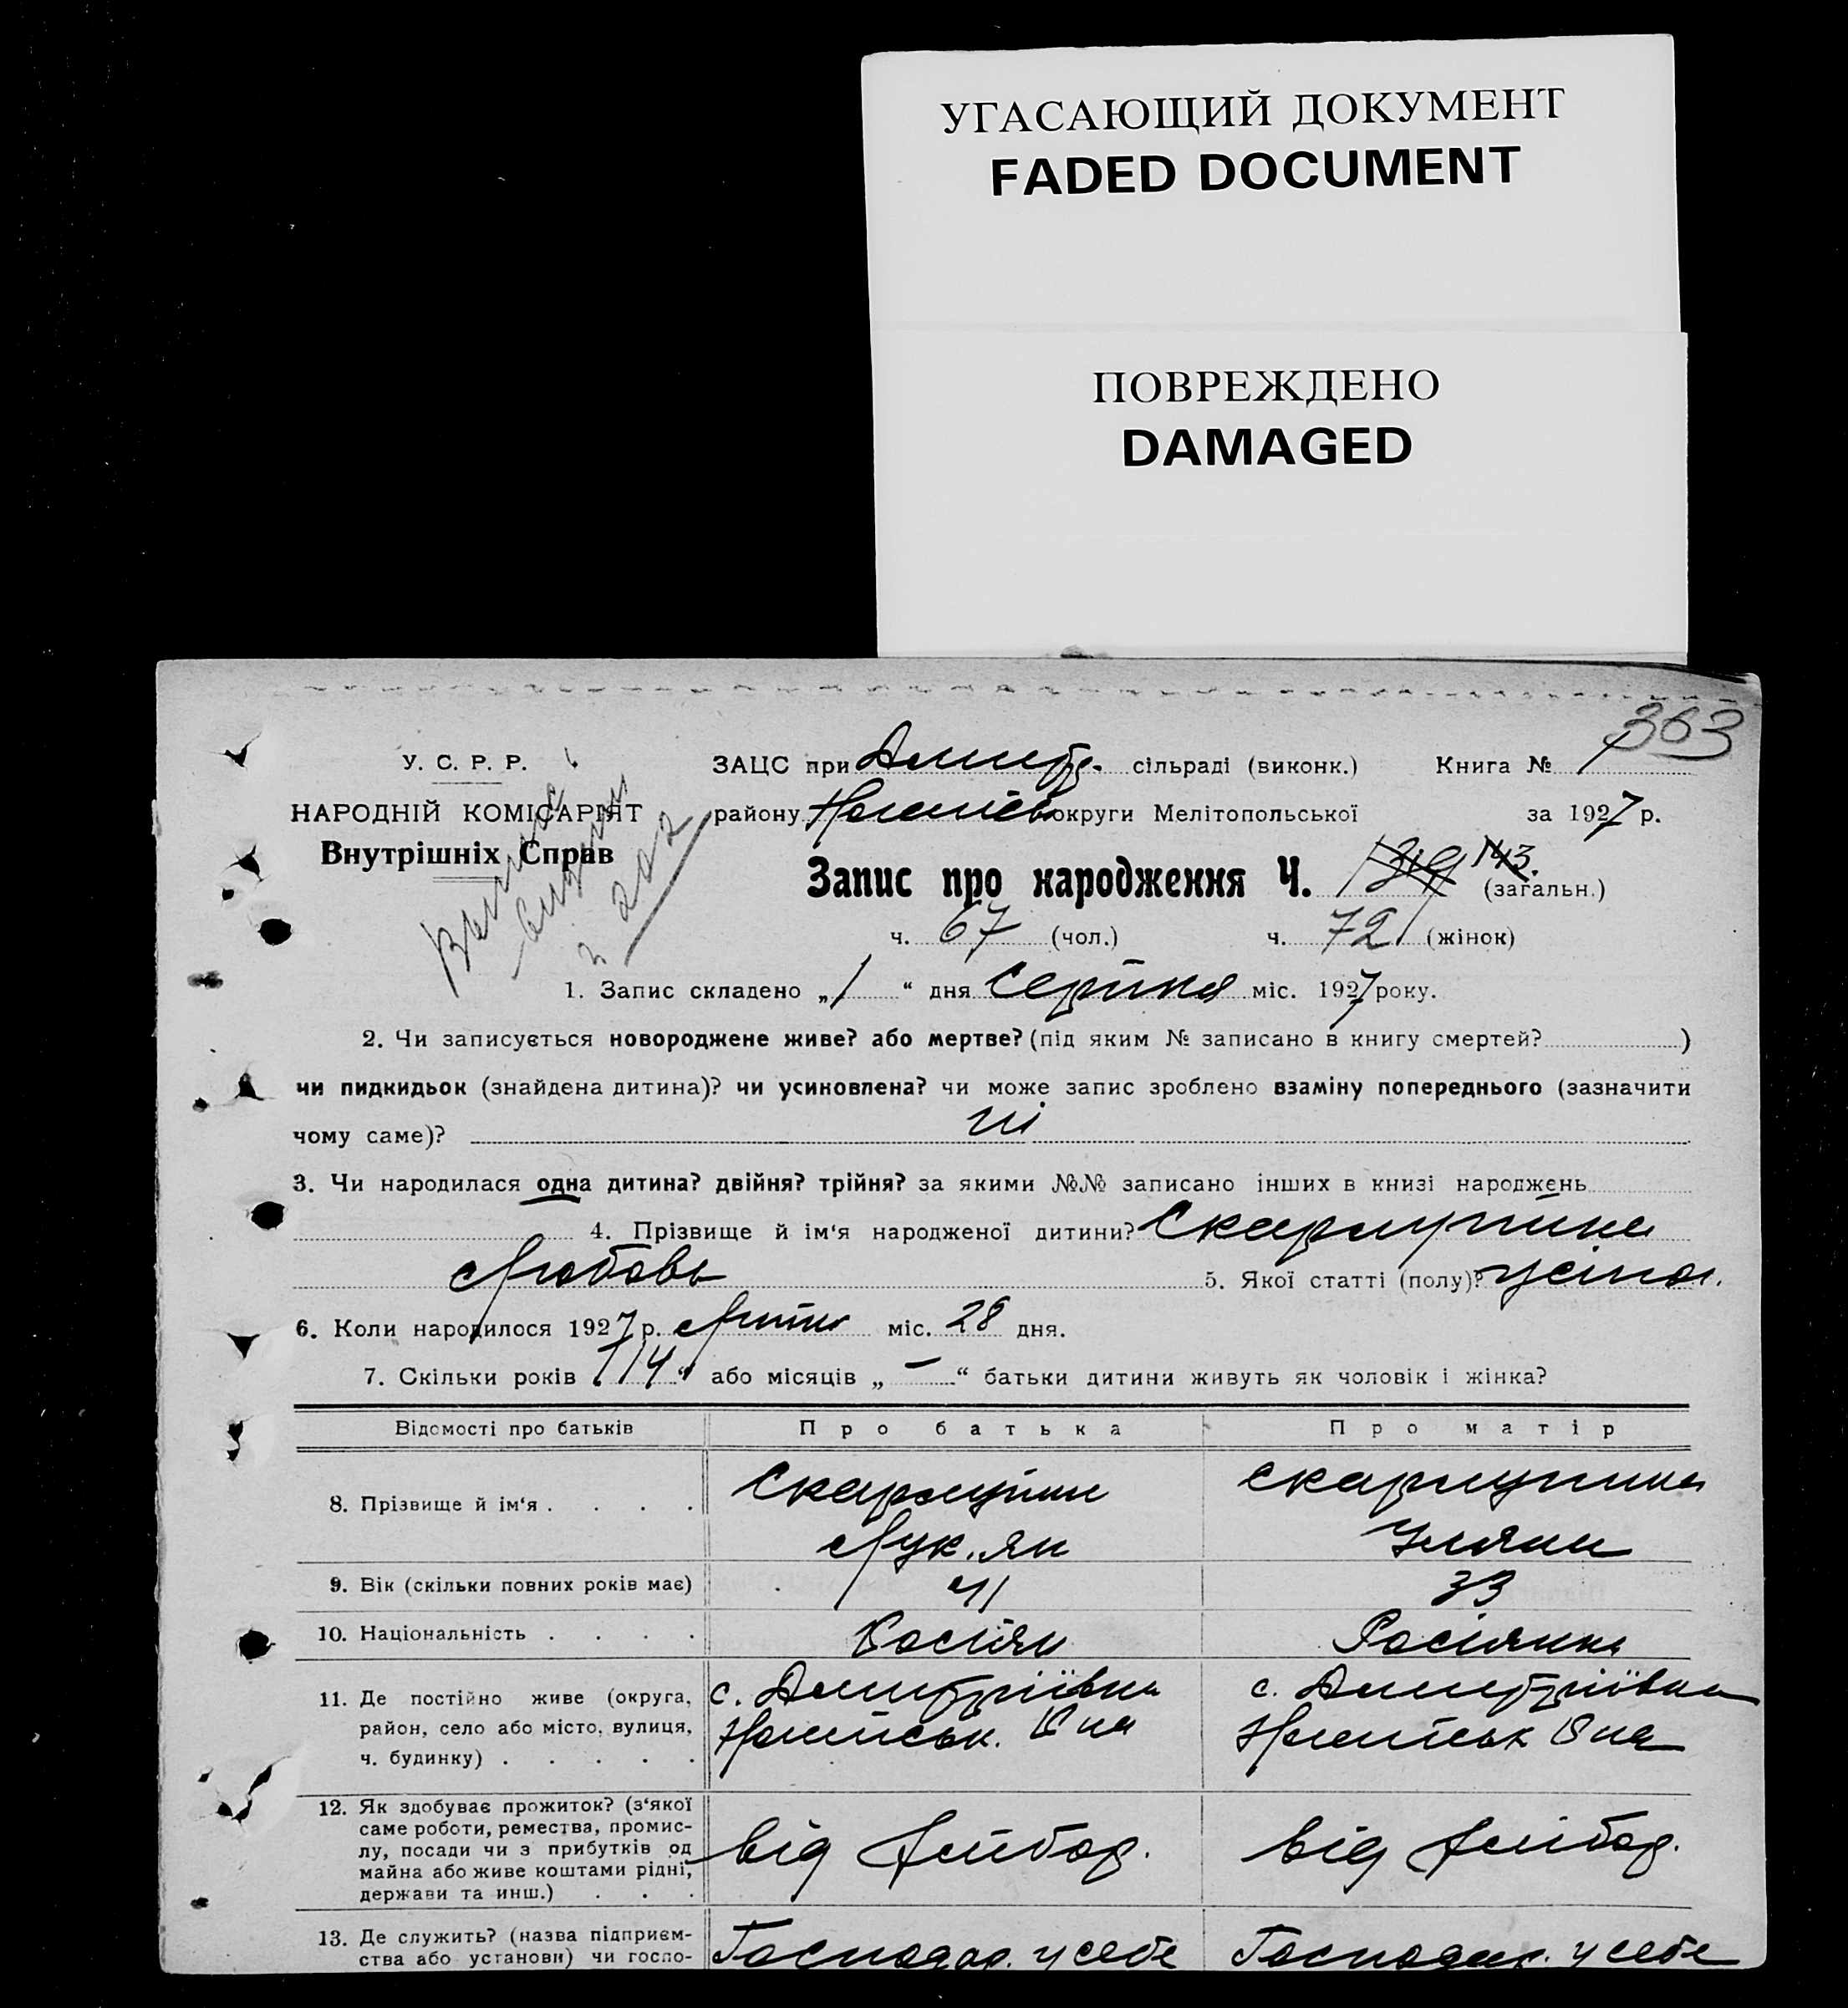 УГАСАЮЩИЙ ДОКУМЕНТ
FADED DOCUMENT
ПОВРЕЖДЕНО
DAMAGED
363
У. С. Р. Р.
НАРОДНІЙ КОМІСАРІЯТ
Внутрішніх Справ
ЗАЦС при Дмитр. сільраді (виконк.) Книга № 1
району округи Мелітопольської за 1927 р.
Запис про народження Ч. 143. (загальн.)
ч. 67 (чол.) ч. 72 (жінок)
1. Запис складено „1“ дня серпня міс. 1927 року.
2. Чи записується новороджене живе? або мертве? (під яким № записано в книгу смертей? )
чи пидкидьок (знайдена дитина)? чи усиновлена? чи може запис зроблено взаміну попереднього (зазначити
чому саме)? ні
3. Чи народилася одна дитина? двійня? трійня? за якими №№ записано інших в книзі народжень
4. Прізвище й ім‘я народженої дитини?
Любовь 5. Якої статті (полу)?
6. Коли народилося 1927 р. міс. 28 дня.
7. Скільки років „14“ або місяців „–“ батьки дитини живуть як чоловік і жінка?
Відомості про батьків Про батька Про матір
8. Прізвище й ім‘я . . . .
Лук'ян Уляна
9. Вік (скільки повних років має) 41 33
10. Національність . . . . Росіян Росіянка
11. Де постійно живе (округа, с. Дмитріївка с. Дмитріївка
район, село або місто, вулиця,
ч. будинку) . . . . .
12. Як здобуває прожиток? (з‘якої
саме роботи, ремества, промис-
лу, посади чи з прибутків од від хлібор. від хлібор.
майна або живе коштами рідні,
держави та инш.) . . .
13. Де служить? (назва підприєм- Господар. у себе Господар. у себе
ства або установи) чи госпо-